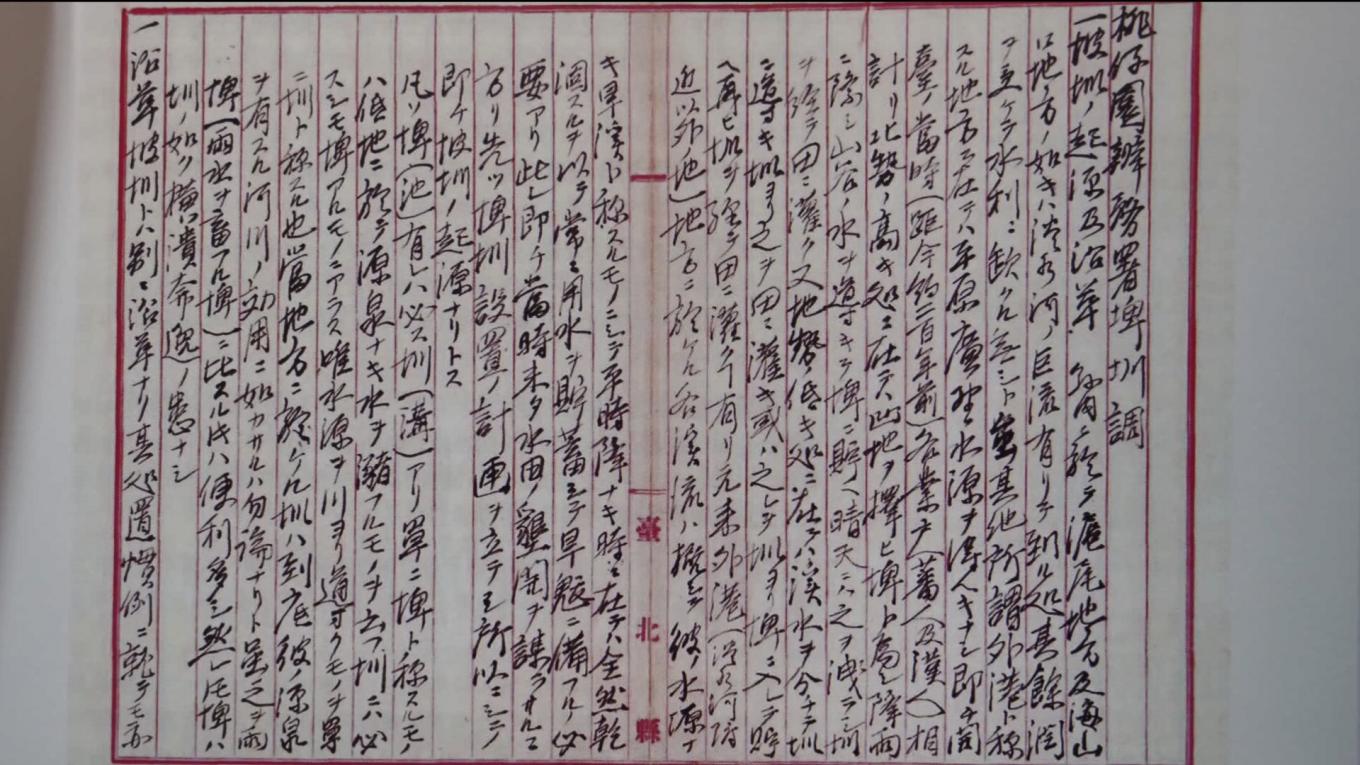 桃仔園辨務署埤圳調
一坡圳ノ起源及沿革 管内ニ於テ滬尾地方及海山
口地方ノ如キハ淡水河ノ巨流有リテ到ル処其餘潤
ヲ受ケテ水利ニ欠クル無シト雖其他所謂外港ト称
スル地方ニ在テハ平原廣野水源ヲ得ヘキナシ即チ開
臺ノ當時(距今約二百年前)各業戸(蕃人及漢人)相
計リ地勢ノ高キ処ニ在テハ凹地ヲ擇ヒ埤ト為シ降雨
ニ際シ山谷ノ水ヲ導キテ埤ニ貯ヘ晴天ニハ之ヲ洩ラシ圳
ヲ経テ田ニ灌ク又地勢低キ処ニ在テハ渓水ヲ分チテ圳
ニ導キ圳ヨリ之ヲ田ニ灌キ或ハ之レヲ圳ヨリ埤ニ入レテ貯
ヘ再ヒ圳ヲ経テ田ニ灌ク有リ元来外港(淡水河附
近以外地)地方ニ於ケル各渓流ハ概シテ彼ノ水源ナ
臺北縣
キ旱渓ト称スルモノニシテ平時降ナキ時ニ在テハ全然乾
涸スルヲ以テ常ニ用水ヲ貯蓄シテ旱魃ニ備フルノ必
要アリ此レ即チ當時未タ水田ノ墾開ヲ謀ラサルニ
方リ先ツ埤圳設置ノ計画ヲ立テシ所以ニシテ
即チ坡圳ノ起源ナリトス
凡ソ埤(池)有レハ必ス圳(溝)アリ單ニ埤ト称スルモノ
ハ低地ニ於テ源泉ナキ水ヲ瀦フルモノヲ云フ圳ニハ必
スシモ埤アルモノニアラス唯水源ヲ川ヨリ導クモノヲ單
ニ圳ト称スル也當地方ニ於ケル圳ハ到底彼ノ源泉
ヲ有スル河川ノ効用ニ如カサルハ勿論ナリト虽之ヲ雨
埤(雨水ヲ畜フル埤)ニ比スルトキハ便利多シ然レトモ埤ハ
圳ノ如ク横潰奔逸ノ患ナシ
一沿革坡圳トハ別ニ沿革ナリ其処置慣例ニ就テモ亦